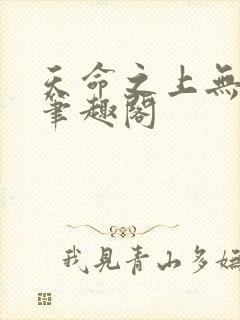 天命之上無
筆趣閣
我見青山多嫵